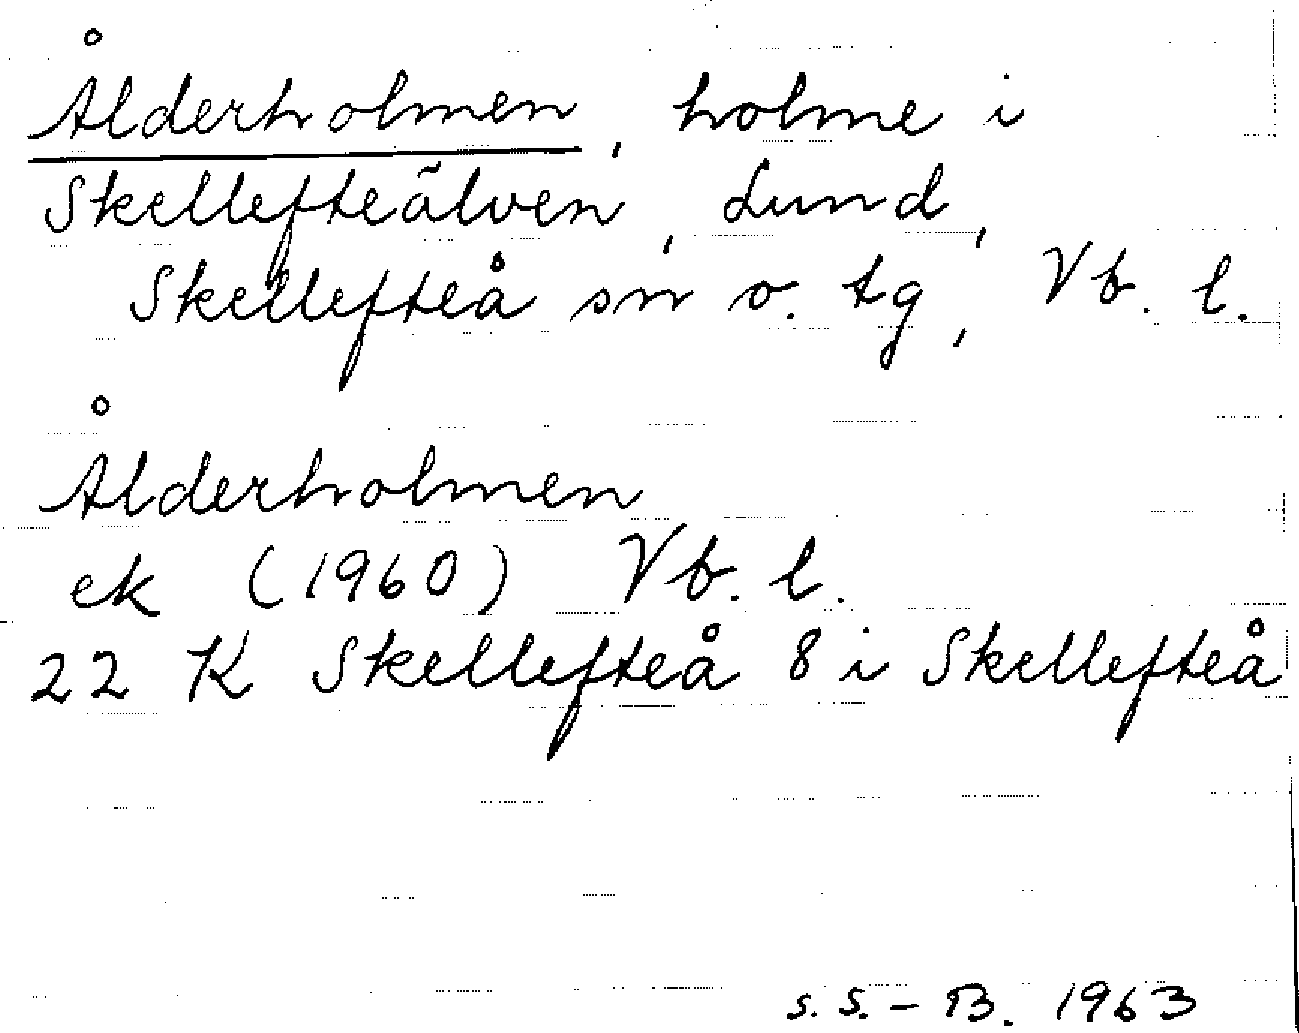 Ålderholmen, holme i
Skellefteälven, Lund,
Skellefteå sn o. tg, Vb. l.
Ålderholmen
ek (1960) Vb. l.
22 K Skellefteå 8 i Skellefteå
S. S. - B. 1963